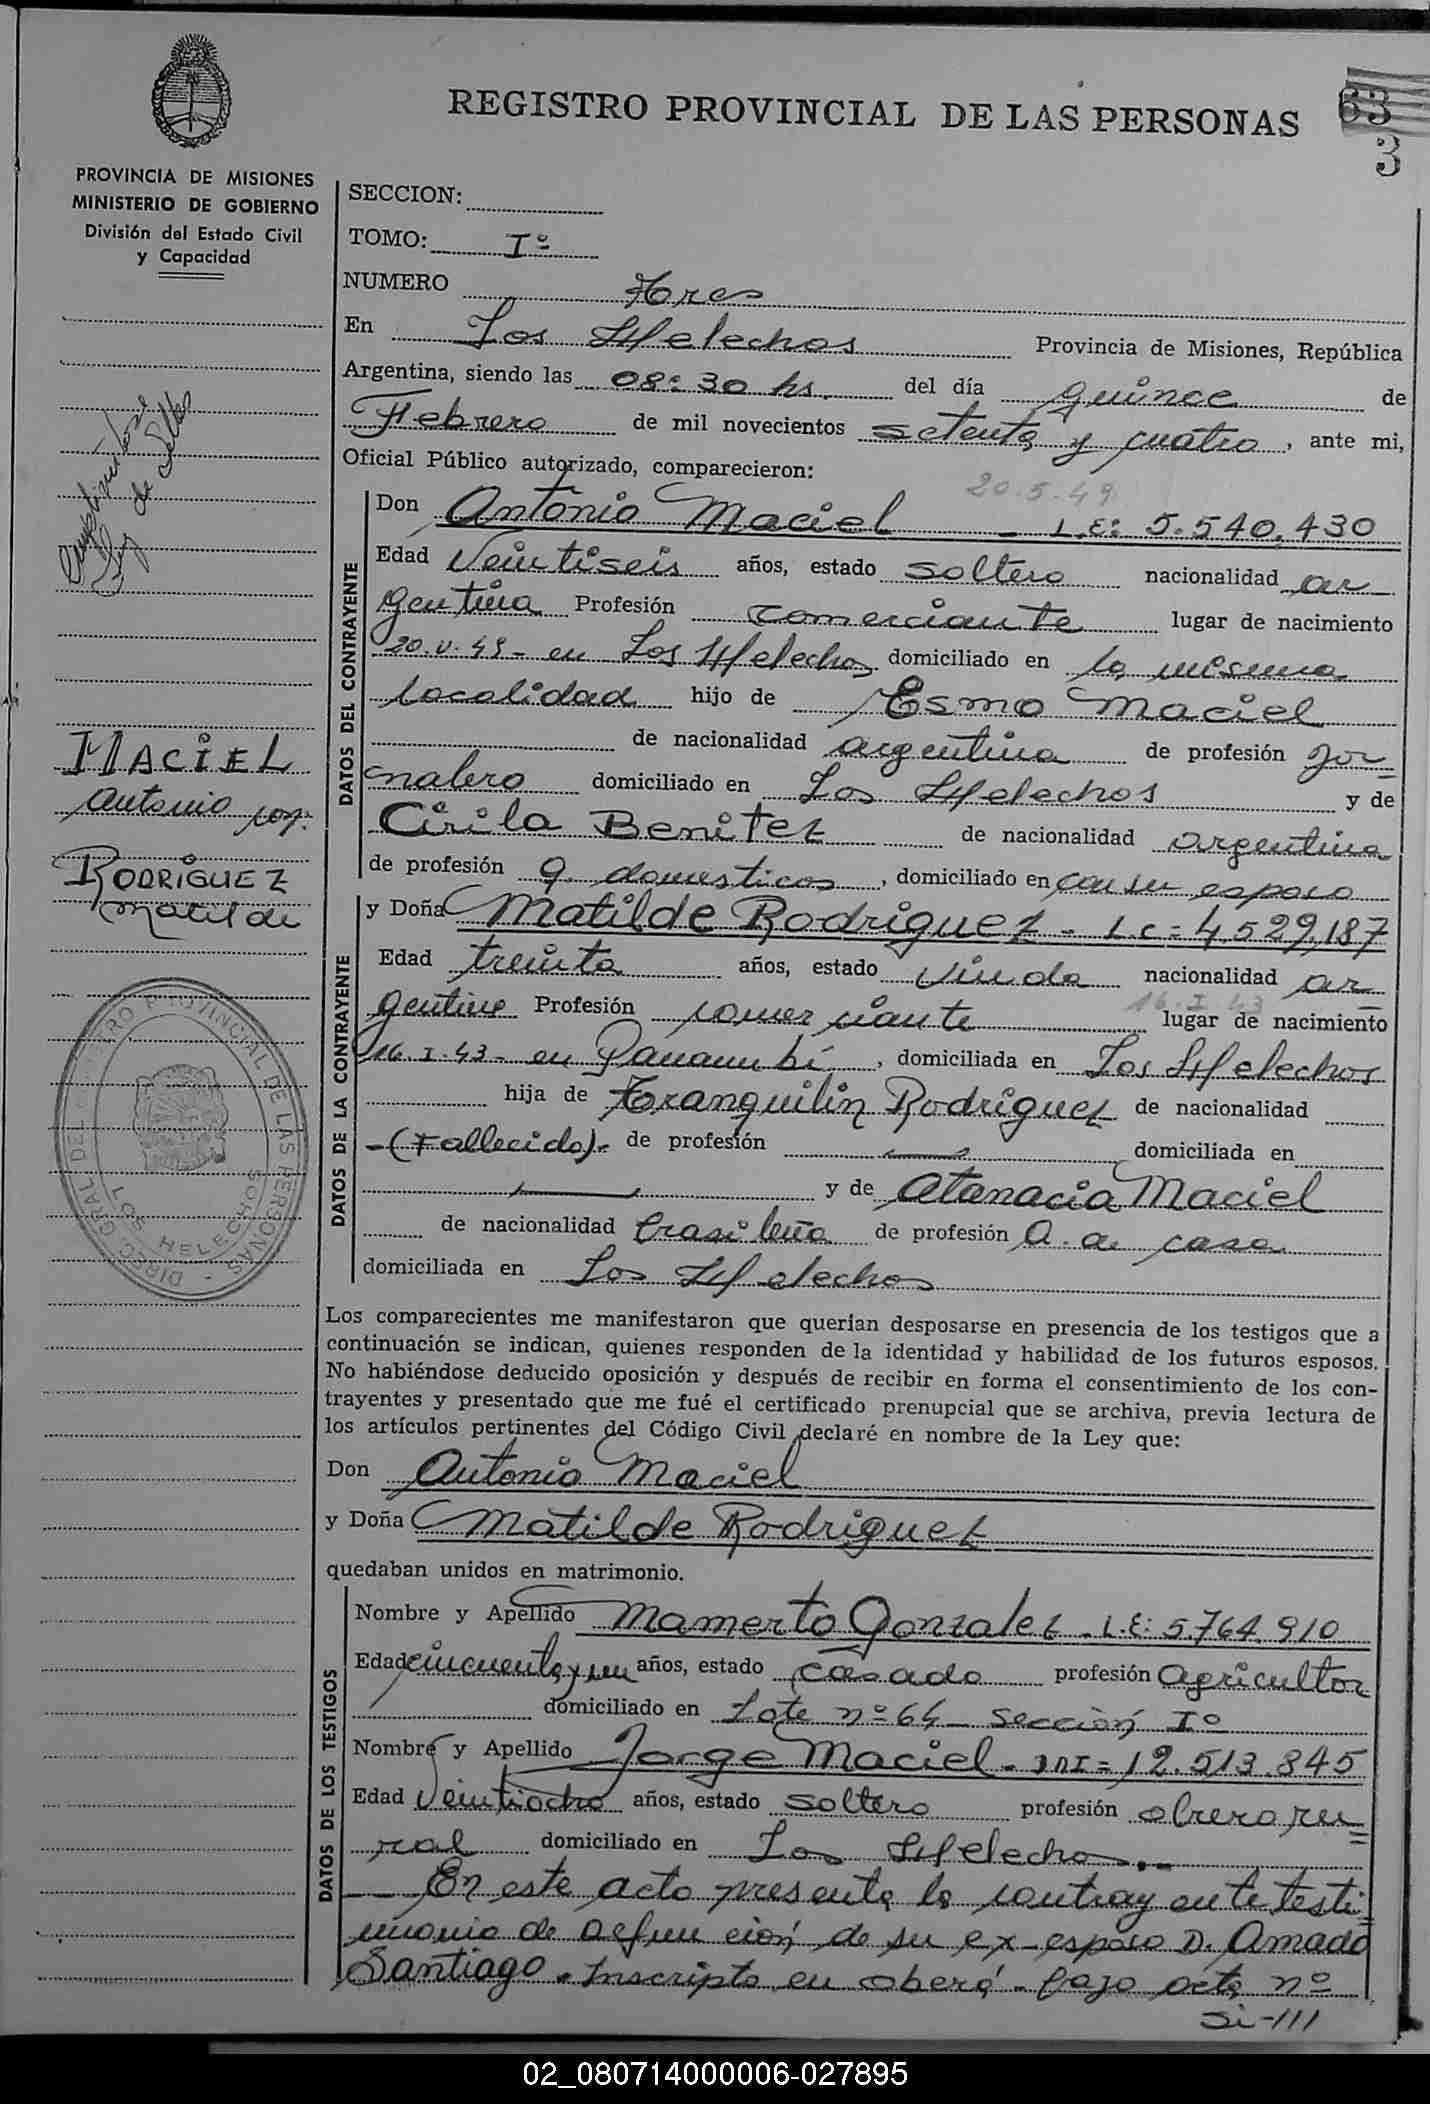 REGISTRO PROVINCIAL DE LAS PERSONAS
63
3
PROVINCIA DE MISIONES
MINISTERIO DE GOBIERNO
División del Estado Civil
y Capacidad
SECCION:
TOMO: Iº
NUMERO Tres
En Los Helechos Provincia de Misiones, República
Argentina, siendo las 08:30 hs. del día quince de
Febrero de mil novecientos setenta y cuatro, ante mi,
Oficial Público autorizado, comparecieron:
20.5.49
DATOS DEL CONTRAYENTE
Don Antonio Maciel - L.E: 5.540.430
Edad Veintiseis años, estado soltero nacionalidad ar
gentina Profesión comerciante lugar de nacimiento
20.V.49- en Los Helechos domiciliado en la misma
localidad hijo de Esmo Maciel
de nacionalidad argentina de profesión jor-
nalero domiciliado en Los Helechos y de
Cirila Benitez de nacionalidad argentina
de profesión q. domesticos, domiciliado en con su esposo
DATOS DE LA CONTRAYENTE
y Doña Matilde Rodriguez - L.C= 4.529.187
Edad treinta años, estado viuda nacionalidad ar
16.I.43
gentina Profesión comerciante lugar de nacimiento
16.I.43- en Panambí, domiciliada en Los Helechos
hija de Tranquilin Rodriguez de nacionalidad
-(Fallecido)- de profesión domiciliada en
y de Atanacia Maciel
de nacionalidad brasileña de profesión a. de casa
domiciliada en Los Helechos
Los comparecientes me manifestaron que querían desposarse en presencia de los testigos que a
continuación se indican, quienes responden de la identidad y habilidad de los futuros esposos.
No habiéndose deducido oposición y después de recibir en forma el consentimiento de los con-
trayentes y presentado que me fué el certificado prenupcial que se archiva, previa lectura de
los artículos pertinentes del Código Civil declaré en nombre de la Ley que:
Don Antonio Maciel
y Doña Matilde Rodriguez
quedaban unidos en matrimonio.
DATOS DE LOS TESTIGOS
Nombre y Apellido Mamerto Gonzalez - L.E: 5.764.910
Edad cincuenta y un años, estado casado profesión agricultor
domiciliado en Lote nº 64 - sección Iº
Nombre y Apellido Jorge Maciel - DNI= 12.513.845
Edad Veintiocho años, estado soltero profesión obrero ru
ral domiciliado en Los Helechos.-
En este acto presenta la contrayente testi
monio de defunción de su ex-esposo D. Amado
Santiago - Inscripto en oberá - bajo acta nº
Si-///
Ley de Sellos
MACIEL
Antonio con:
RODRIGUEZ
Matilde
DIREC. GRAL. DEL REGISTRO PROVINCIAL DE LAS PERSONAS
LOS HELECHOS
02_080714000006-027895